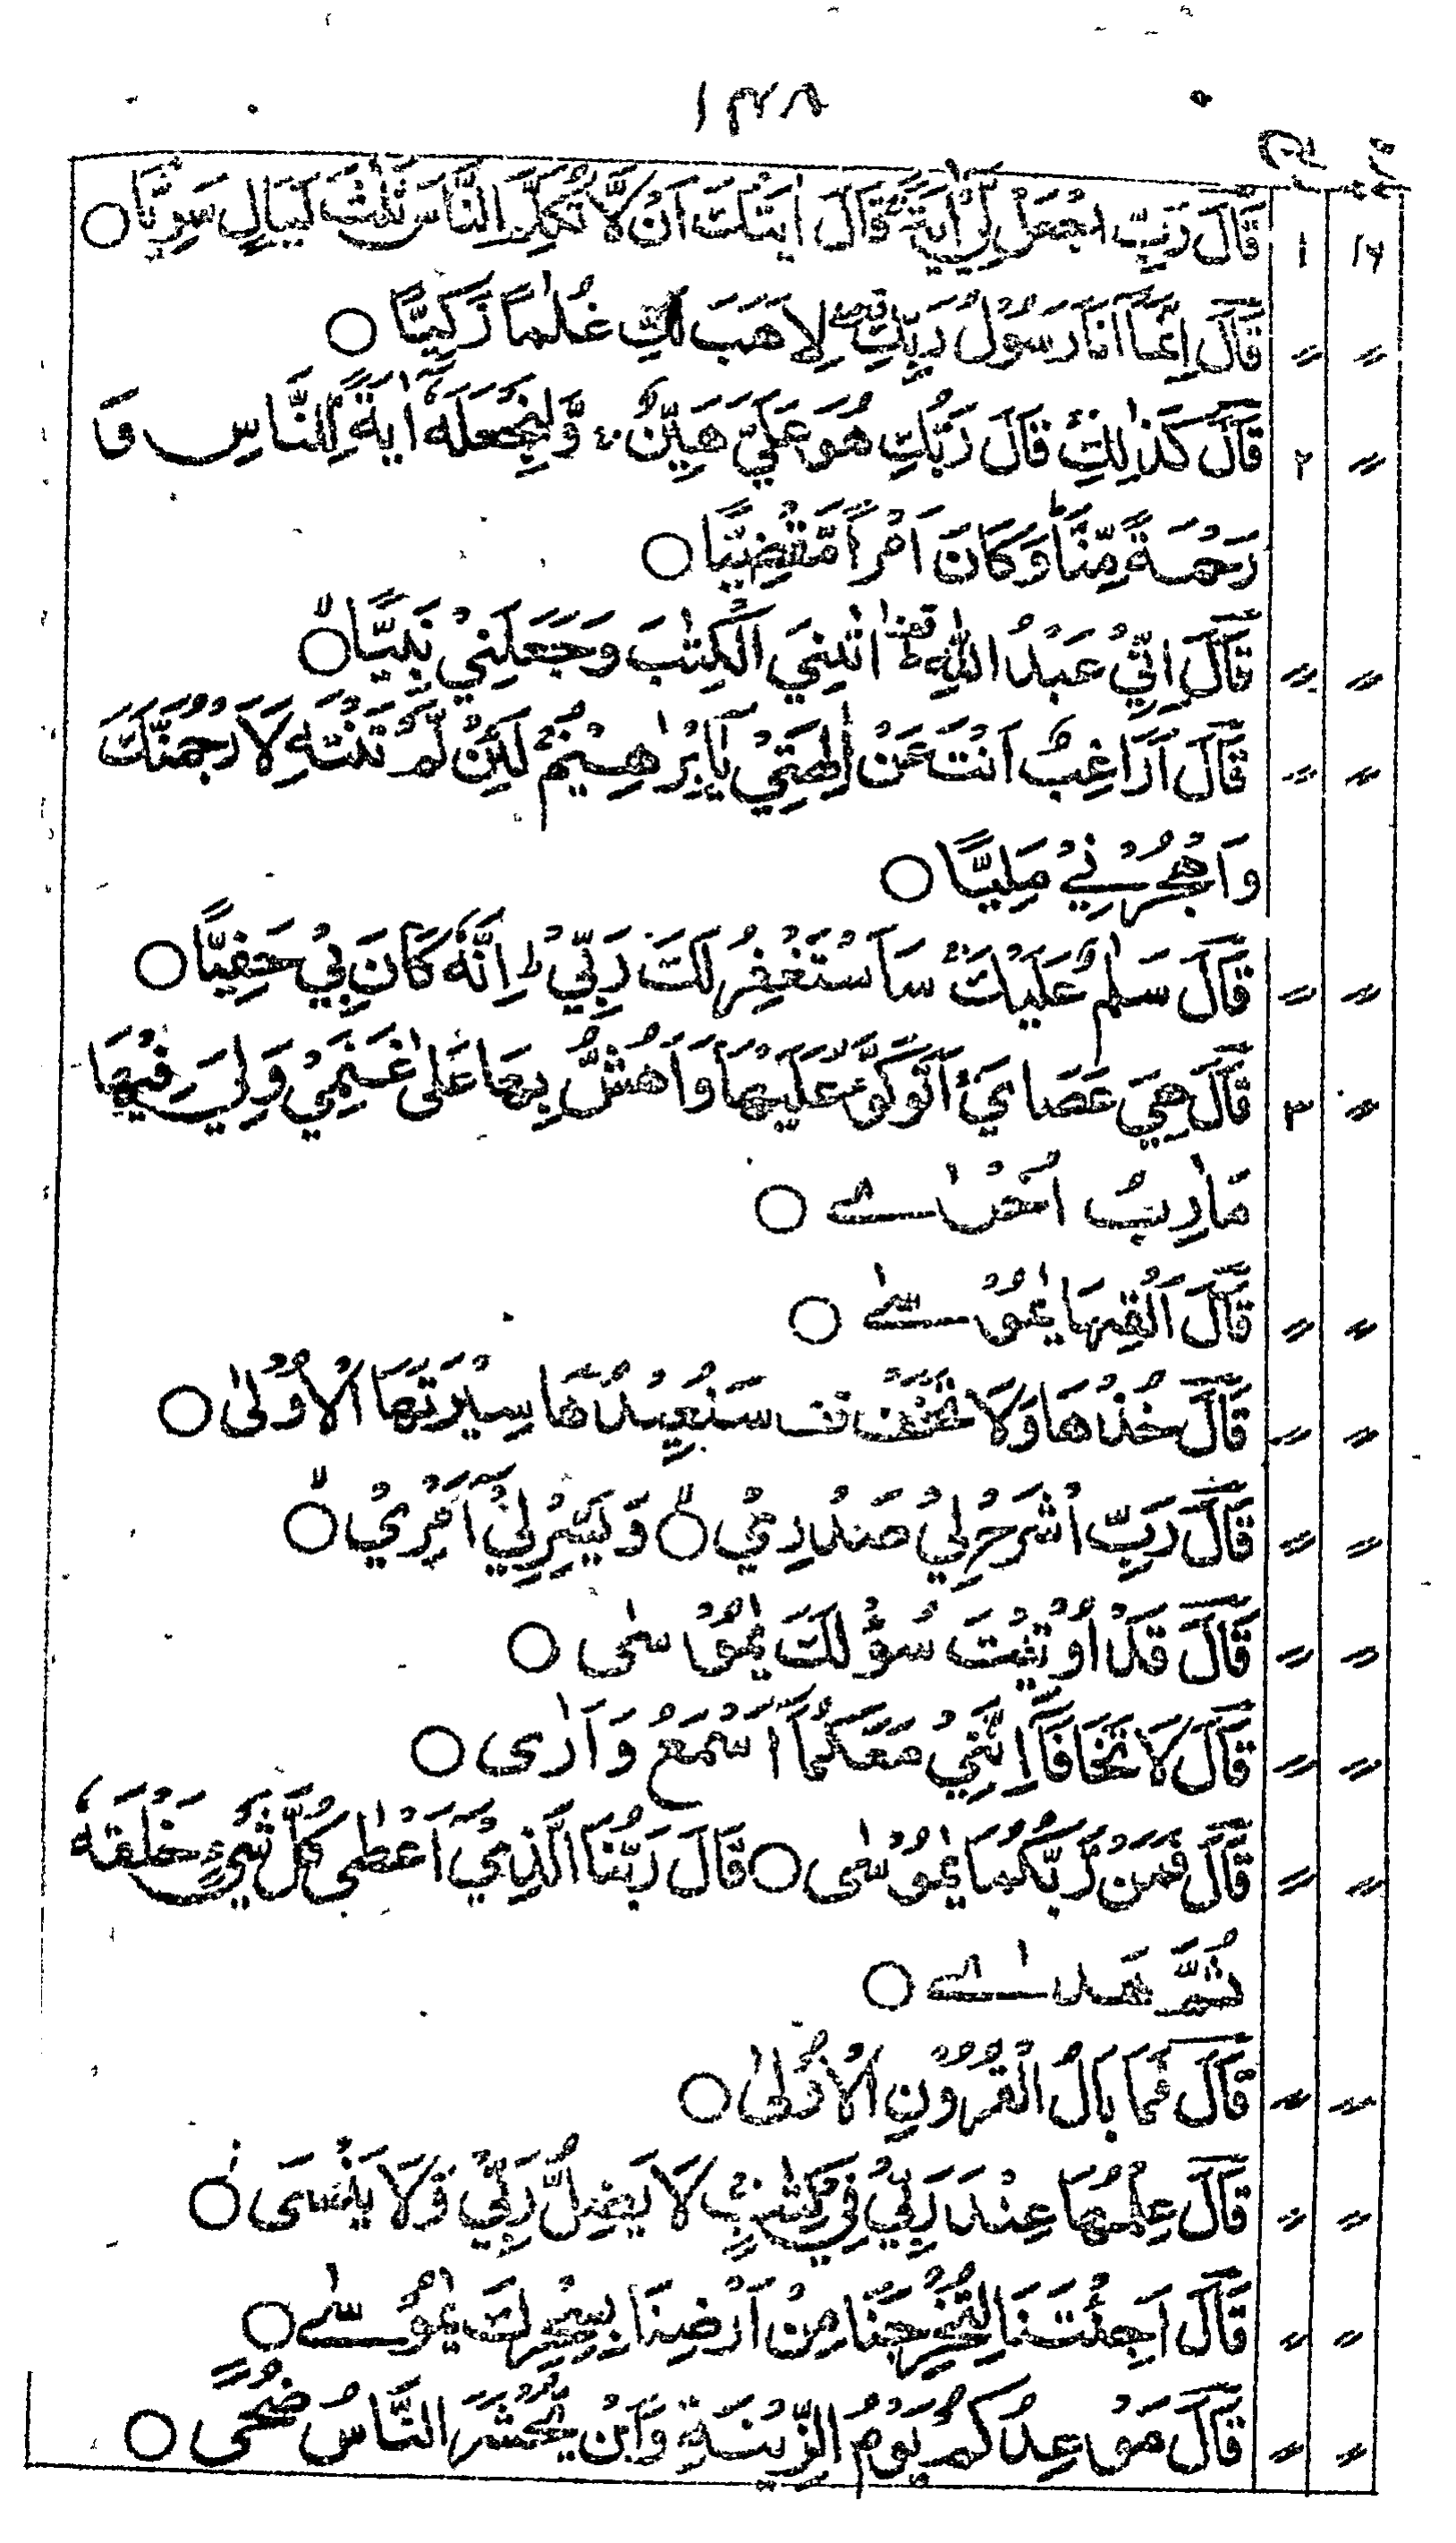 ۱۳۷۸
۱۶ ۱ قَالَ رَبِّ اجْعَلْ لِّيْ اٰيَةً ؕ قَالَ اٰيَتُكَ اَنْ لَّا تُكَلِّمَ النَّاسَ ثَلٰثَ لَيَالٍ سَوِيًّا ○
〃 〃 قَالَ اِنَّمَاۤ اَنَا رَسُوْلُ رَبِّكِ ۖ لِاَهَبَ لَكِ غُلٰمًا زَكِيًّا ○
〃 ۲ قَالَ كَذٰلِكِ ۚ قَالَ رَبُّكِ هُوَ عَلَيَّ هَيِّنٌ ۚ وَّلِنَجْعَلَهٗۤ اٰيَةً لِّلنَّاسِ وَ
رَحْمَةً مِّنَّا ۚ وَكَانَ اَمْرًا مَّقْضِيًّا ○
〃 〃 قَالَ اِنِّيْ عَبْدُ اللّٰهِ ؕ اٰتٰنِيَ الْكِتٰبَ وَجَعَلَنِيْ نَبِيًّا ۙ○
〃 〃 قَالَ اَرَاغِبٌ اَنْتَ عَنْ اٰلِهَتِيْ يٰۤاِبْرٰهِيْمُ ۚ لَئِنْ لَّمْ تَنْتَهِ لَاَرْجُمَنَّكَ
وَاهْجُرْنِيْ مَلِيًّا ○
〃 〃 قَالَ سَلٰمٌ عَلَيْكَ ۚ سَاَسْتَغْفِرُ لَكَ رَبِّيْ ؕ اِنَّهٗ كَانَ بِيْ حَفِيًّا ○
〃 ۳ قَالَ هِيَ عَصَايَ ۚ اَتَوَكَّؤُا عَلَيْهَا وَاَهُشُّ بِهَا عَلٰى غَنَمِيْ وَلِيَ فِيْهَا
مَاٰرِبُ اُخْرٰے ○
〃 〃 قَالَ اَلْقِهَا يٰمُوْسٰے ○
〃 〃 قَالَ خُذْهَا وَلَا تَخَفْ ۫ سَنُعِيْدُهَا سِيْرَتَهَا الْاُوْلٰى ○
〃 〃 قَالَ رَبِّ اشْرَحْ لِيْ صَدْرِيْ ۙ○ وَيَسِّرْ لِيْۤ اَمْرِيْ ۙ○
〃 〃 قَالَ قَدْ اُوْتِيْتَ سُؤْلَكَ يٰمُوْسٰى ○
〃 〃 قَالَ لَا تَخَافَاۤ اِنَّنِيْ مَعَكُمَاۤ اَسْمَعُ وَاَرٰى ○
〃 〃 قَالَ فَمَنْ رَّبُّكُمَا يٰمُوْسٰى ○ قَالَ رَبُّنَا الَّذِيْۤ اَعْطٰى كُلَّ شَيْءٍ خَلْقَهٗ
ثُمَّ هَدٰے ○
〃 〃 قَالَ فَمَا بَالُ الْقُرُوْنِ الْاُوْلٰى ○
〃 〃 قَالَ عِلْمُهَا عِنْدَ رَبِّيْ فِيْ كِتٰبٍ ۚ لَا يَضِلُّ رَبِّيْ وَلَا يَنْسَى ○
〃 〃 قَالَ اَجِئْتَنَا لِتُخْرِجَنَا مِنْ اَرْضِنَا بِسِحْرِكَ يٰمُوْسٰے ○
〃 〃 قَالَ مَوْعِدُكُمْ يَوْمُ الزِّيْنَةِ وَاَنْ يُّحْشَرَ النَّاسُ ضُحًى ○